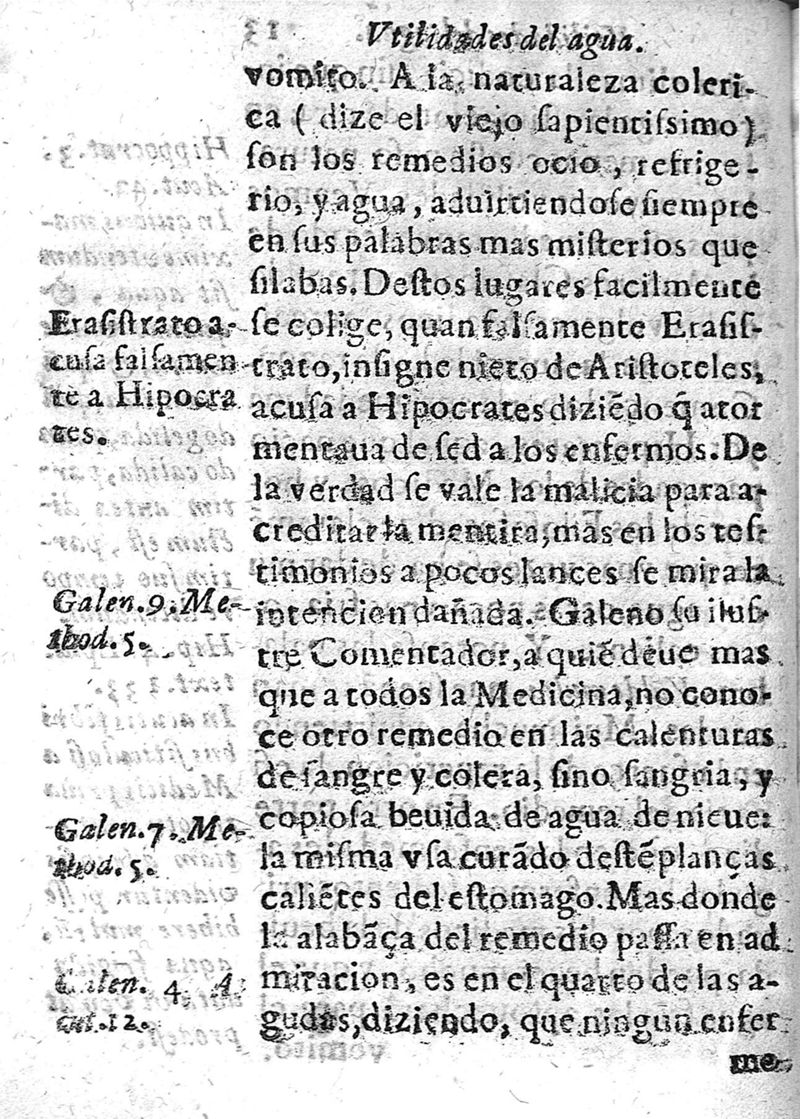 Vtilidades del agua.
vomito. A la naturaleza coleri-
ca ( dize el viejo ſapientiſsimo)
ſon los remedios ocio, refrige-
rio, y agua, aduirtiendoſe ſiempre
en ſus palabras mas miſterios que
ſilabas. Deſtos lugares facilmente
ſe colige, quan falſamente Eraſiſ-
trato, inſigne nieto de Ariſtoteles,
acuſa a Hipocrates diziẽdo q̃ ator
mentaua de ſed a los enfermos. De
la verdad ſe vale la malicia para a-
creditar la mentira, mas en los teſ-
timonios a pocos lances ſe mira la
intencion dañada. Galeno ſu iluſ-
tre Comentador, a quiẽ deue mas
que a todos la Medicina, no cono-
ce otro remedio en las calenturas
de ſangre y colera, ſino ſangria, y
copioſa beuida de agua de nieue:
la miſma vſa curãdo deſtẽplanças
caliẽtes del eſtomago. Mas donde
la alabãça del remedio paſſa en ad
miracion, es en el quarto de las a-
gudas, diziendo, que ningun enfer
me-
Eraſiſtrato a-
cuſa falſamen
te a Hipocra
tes.
Galen. 9. Me-
thod. 5.
Galen. 7. Me-
thod. 5.
Galen. 4. A-
cut. 12.